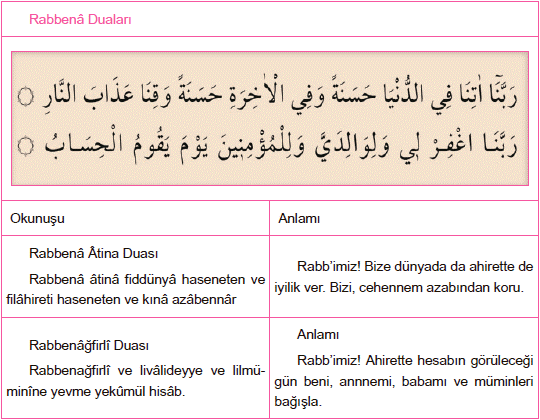 Rabbenâ Duaları
رَبَّنَٓا اٰتِنَا فِي الدُّنْيَا حَسَنَةً وَفِي الْاٰخِرَةِ حَسَنَةً وَقِنَا عَذَابَ النَّارِ ۝
رَبَّنَا اغْفِرْ ل۪ي وَلِوَالِدَيَّ وَلِلْمُؤْمِن۪ينَ يَوْمَ يَقُومُ الْحِسَابُ ۝
Okunuşu
Anlamı
Rabbenâ Âtina Duası
Rabbenâ âtinâ fiddünyâ haseneten ve
filâhireti haseneten ve kınâ azâbennâr
Rabb’imiz! Bize dünyada da ahirette de
iyilik ver. Bizi, cehennem azabından koru.
Rabbenâğfirlî Duası
Rabbenağfirlî ve livâlideyye ve lilmü-
minîne yevme yekûmül hisâb.
Anlamı
Rabb’imiz! Ahirette hesabın görüleceği
gün beni, annnemi, babamı ve müminleri
bağışla.